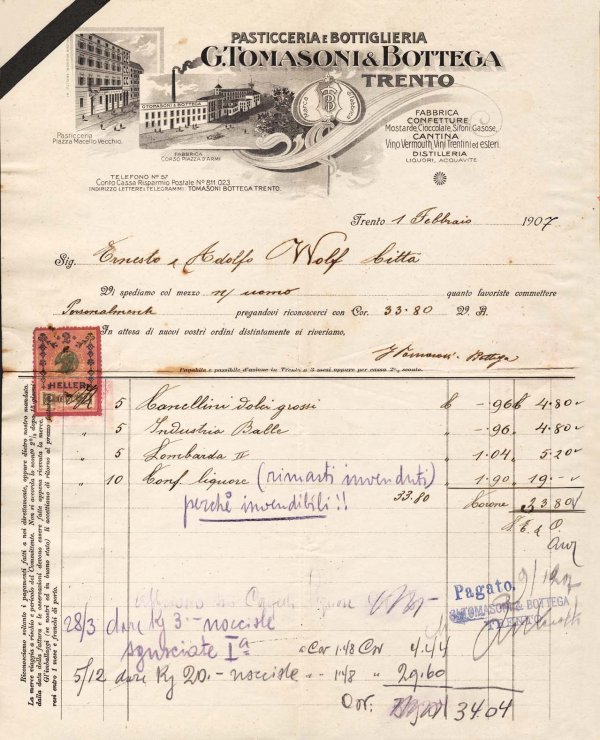 PASTICCERIA E BOTTIGLIERIA
G. TOMASONI & BOTTEGA
TRENTO
G. TOMASONI & BOTTEGA
Pasticceria
Piazza Macello Vecchio.
FABBRICA
CORSO PIAZZA D'ARMI
TB
FABBRICA
CONFETTURE
Mostarde, Cioccolate, Sifoni, Gasose,
CANTINA
Vino Vermouth, Vini Trentini ed esteri.
DISTILLERIA
LIQUORI, ACQUAVITE
TELEFONO No 57
Conto Cassa Risparmio Postale No 811.023
INDIRIZZO LETTERE e TELEGRAMMI: TOMASONI BOTTEGA TRENTO.
Trento 1 Febbraio 1907
Sig. Ernesto e Adolfo Wolf Citta
Vi spediamo col mezzo n/ uomo quanto favoriste commettere
Personalmente pregandovi riconoscerci con Cor. 33.80 V. A.
In attesa di nuovi vostri ordini distintamente vi riveriamo.
G Tomasoni & Bottega
Pagabile e passibile d'azione in Trento a 3 mesi oppure per cassa 2% sconto.
2
HELLER
Riconosciamo soltanto i pagamenti fatti a noi direttamente, oppure dietro nostro mandato.
La merce viaggia a rischio e pericolo del Committente. Non si accorda lo sconto 2% dopo 15 giorni
dalla data della fattura e le osservazioni devono essere fatte appena ricevuta la merce.
Gl'imballaggi (se nostri ed in buono stato) li accettiamo di ritorno al prezzo fatturato
resi entro 1 mese e franchi di porto.
5 Cancellini dolci grossi -.96 4.80
" 5 Industria Balle " -.96 4.80
" 5 Lombarda II " 1.04 5.20
" 10 Conf. liquore (rimasti invenduti) 1.90 19.-
perchè invendibili!! 33.80 Corone 33.80
9/12 07
Pagato.
G. TOMASONI & BOTTEGA
TRENTO
28/3 dare Kg 3.- nocciole
sgusciate Ia a Cor 1.48 Cor 4.44
5/12 dare Kg 20.- nocciole " " 1.48 " 29.60
Cor: 34.04